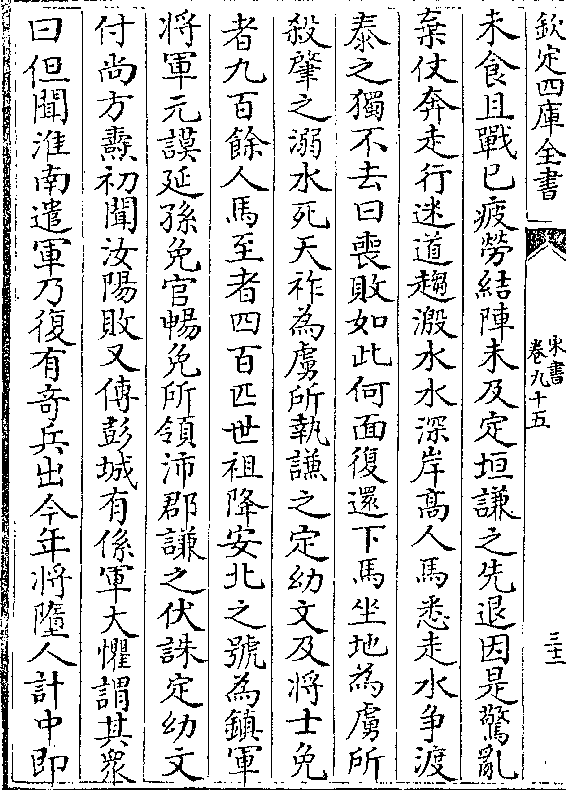 欽定四庫全書
宋書
卷九十五
三十三
未食且戰已疲勞結陣未及定垣謙之先退因是驚亂
棄仗奔走行迷道趨溵水水深岸高人馬悉走水争渡
泰之獨不去曰喪敗如此何面復還下馬坐地為虜所
殺肇之溺水死天祚為虜所執謙之定幼文及將士免
者九百餘人馬至者四百匹世祖降安北之號為鎮軍
將軍元謨延孫免官暢免所領沛郡謙之伏誅定幼文
付尚方燾初聞汝陽敗又傳彭城有係軍大懼謂其衆
曰但聞淮南遣軍乃復有奇兵出今年將墮人計中即